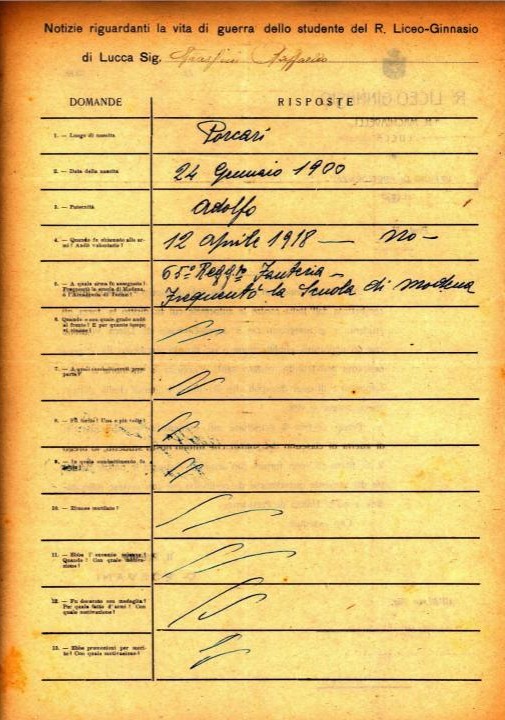 Notizie riguardanti la vita di guerra dello studente del R. Liceo-Ginnasio
di Lucca Sig.
DOMANDE RISPOSTE
1. — Luogo di nascita Porcari
2. — Data della nascita 24 Gennaio 1900
3. — Paternità Adolfo
4. — Quando fu chiamato alle ar-
mi? Andò volontario? 12 Aprile 1918 — No —
5. — A quale arma fu assegnato? 65º Regg.to Fanteria —
Frequentò la scuola di Modena, Frequentò la Scuola di Modena
o l'Accademia di Torino?
6. — Quando e con quale grado andò
al fronte? E per quanto tempo
vi rimase?
7. — A quali combattimenti prese
parte?
8. — Fu ferito? Una o più volte?
9. — In quale combattimento fu
10. — Rimase mutilato?
11. — Ebbe l'encomio
Quando? Con quale motiva-
zione?
12. — Fu decorato con medaglia?
Per quale fatto d'armi? Con
quale motivazione?
13. — Ebbe promozioni per meri-
to? Con quale motivazione?
R. LICEO GINNASIO